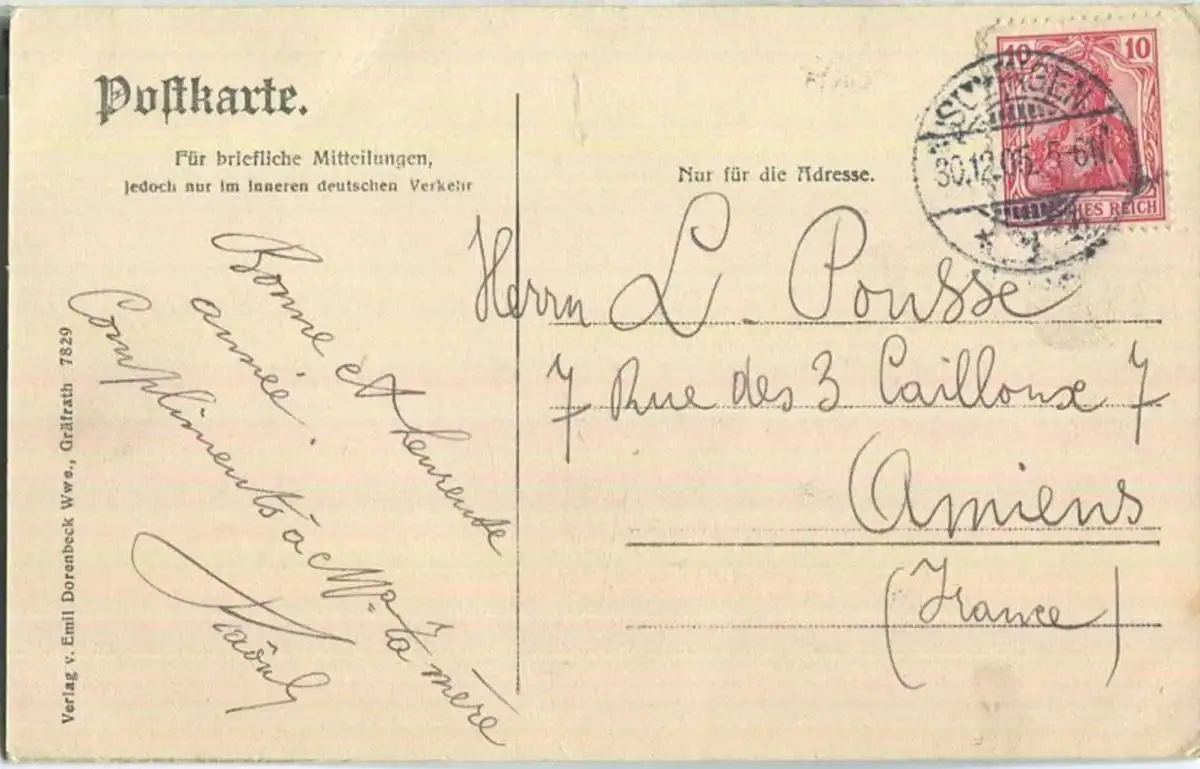 Postkarte.
Für briefliche Mitteilungen,
jedoch nur im inneren deutschen Verkehr
Nur für die Adresse.
10 10
REICH
SOLINGEN
30.12.05. 5-6N.
Herrn L. Pousse
7 Rue des 3 Cailloux 7
Amiens
(France)
Bonne et heureuse
année.
Compliments à ta mère
Raoul
Verlag v. Emil Dorenbeck Wwe., Gräfrath 7829